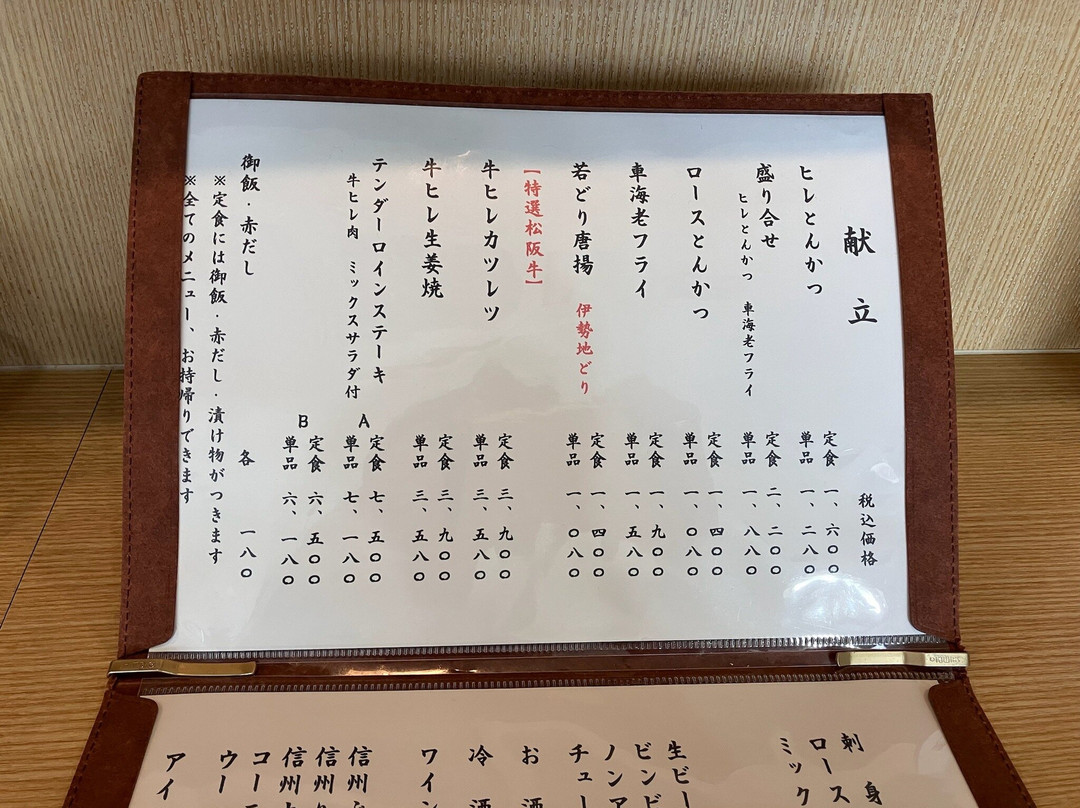 献立
税込価格
ヒレとんかつ 定食 一、六〇〇
単品 一、二八〇
盛り合せ 定食 二、二〇〇
ヒレとんかつ 車海老フライ 単品 一、八八〇
ロースとんかつ 定食 一、四〇〇
単品 一、〇八〇
車海老フライ 定食 一、九〇〇
単品 一、五八〇
若どり唐揚 伊勢地どり 定食 一、四〇〇
単品 一、〇八〇
【特選松阪牛】
牛ヒレカツレツ 定食 三、九〇〇
単品 三、五八〇
牛ヒレ生姜焼 定食 三、九〇〇
単品 三、五八〇
テンダーロインステーキ A 定食 七、五〇〇
牛ヒレ肉 ミックスサラダ付 単品 七、一八〇
B 定食 六、五〇〇
単品 六、一八〇
御飯・赤だし 各 一八〇
※定食には御飯・赤だし・漬け物がつきます
※全てのメニュー、お持帰りできます
刺身
ロース
ミック
生ビー
ビンビ
ノンア
チュー
お酒
冷酒
ワイン
信州
信州
信州
コー
ウー
アイ